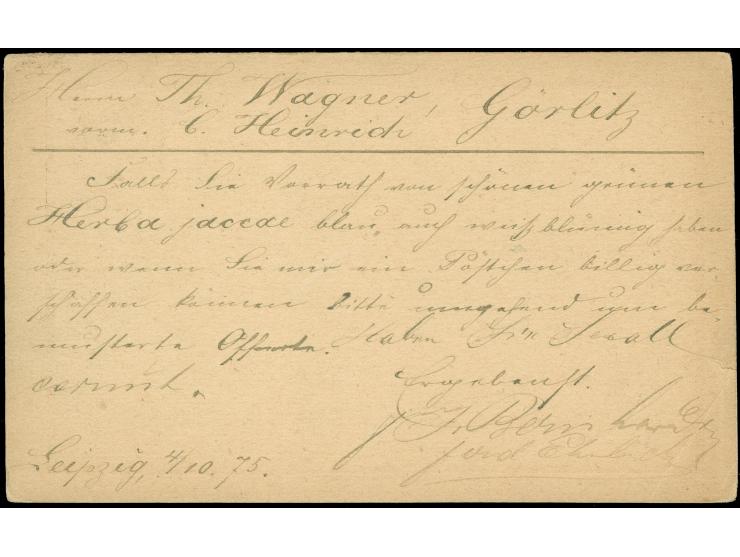 Herrn Th. Wagner, Görlitz
vorm. C. Heinrich
Falls Sie Vorrath von schönen grünen
Herba jaceae blau, auch weißblümig haben
oder wenn Sie mir ein Pöstchen billig ver-
schaffen können bitte umgehend um be-
musterte Offerte. Haben Sie Secale
cornut.
Ergebenst.
Leipzig, 4/10. 75.